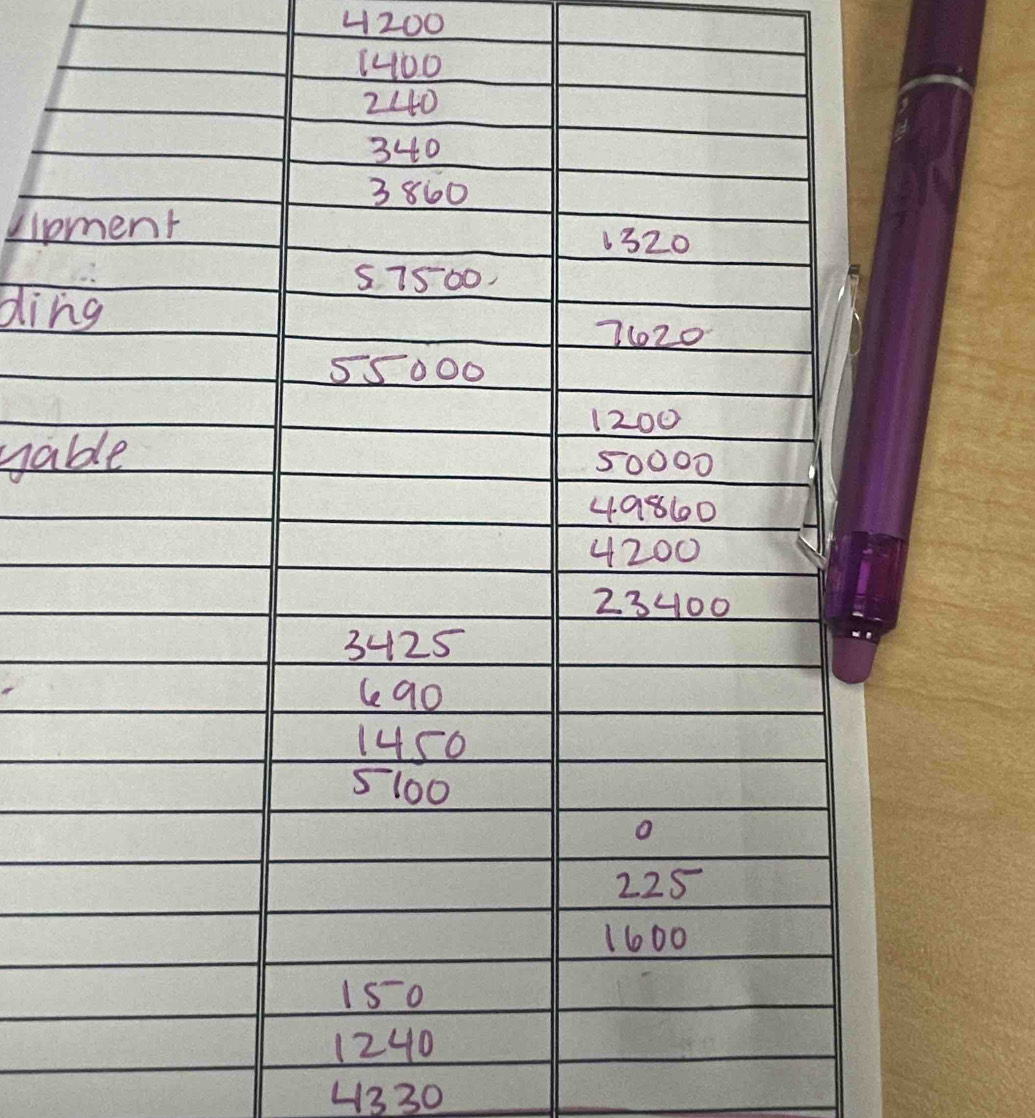 4200
1400
240
340
3860
ipment
1320
57500
ding
7620
55000
1200
yable
50000
49860
4200
23400
3425
690
1450
5100
0
225
1600
150
1240
4330